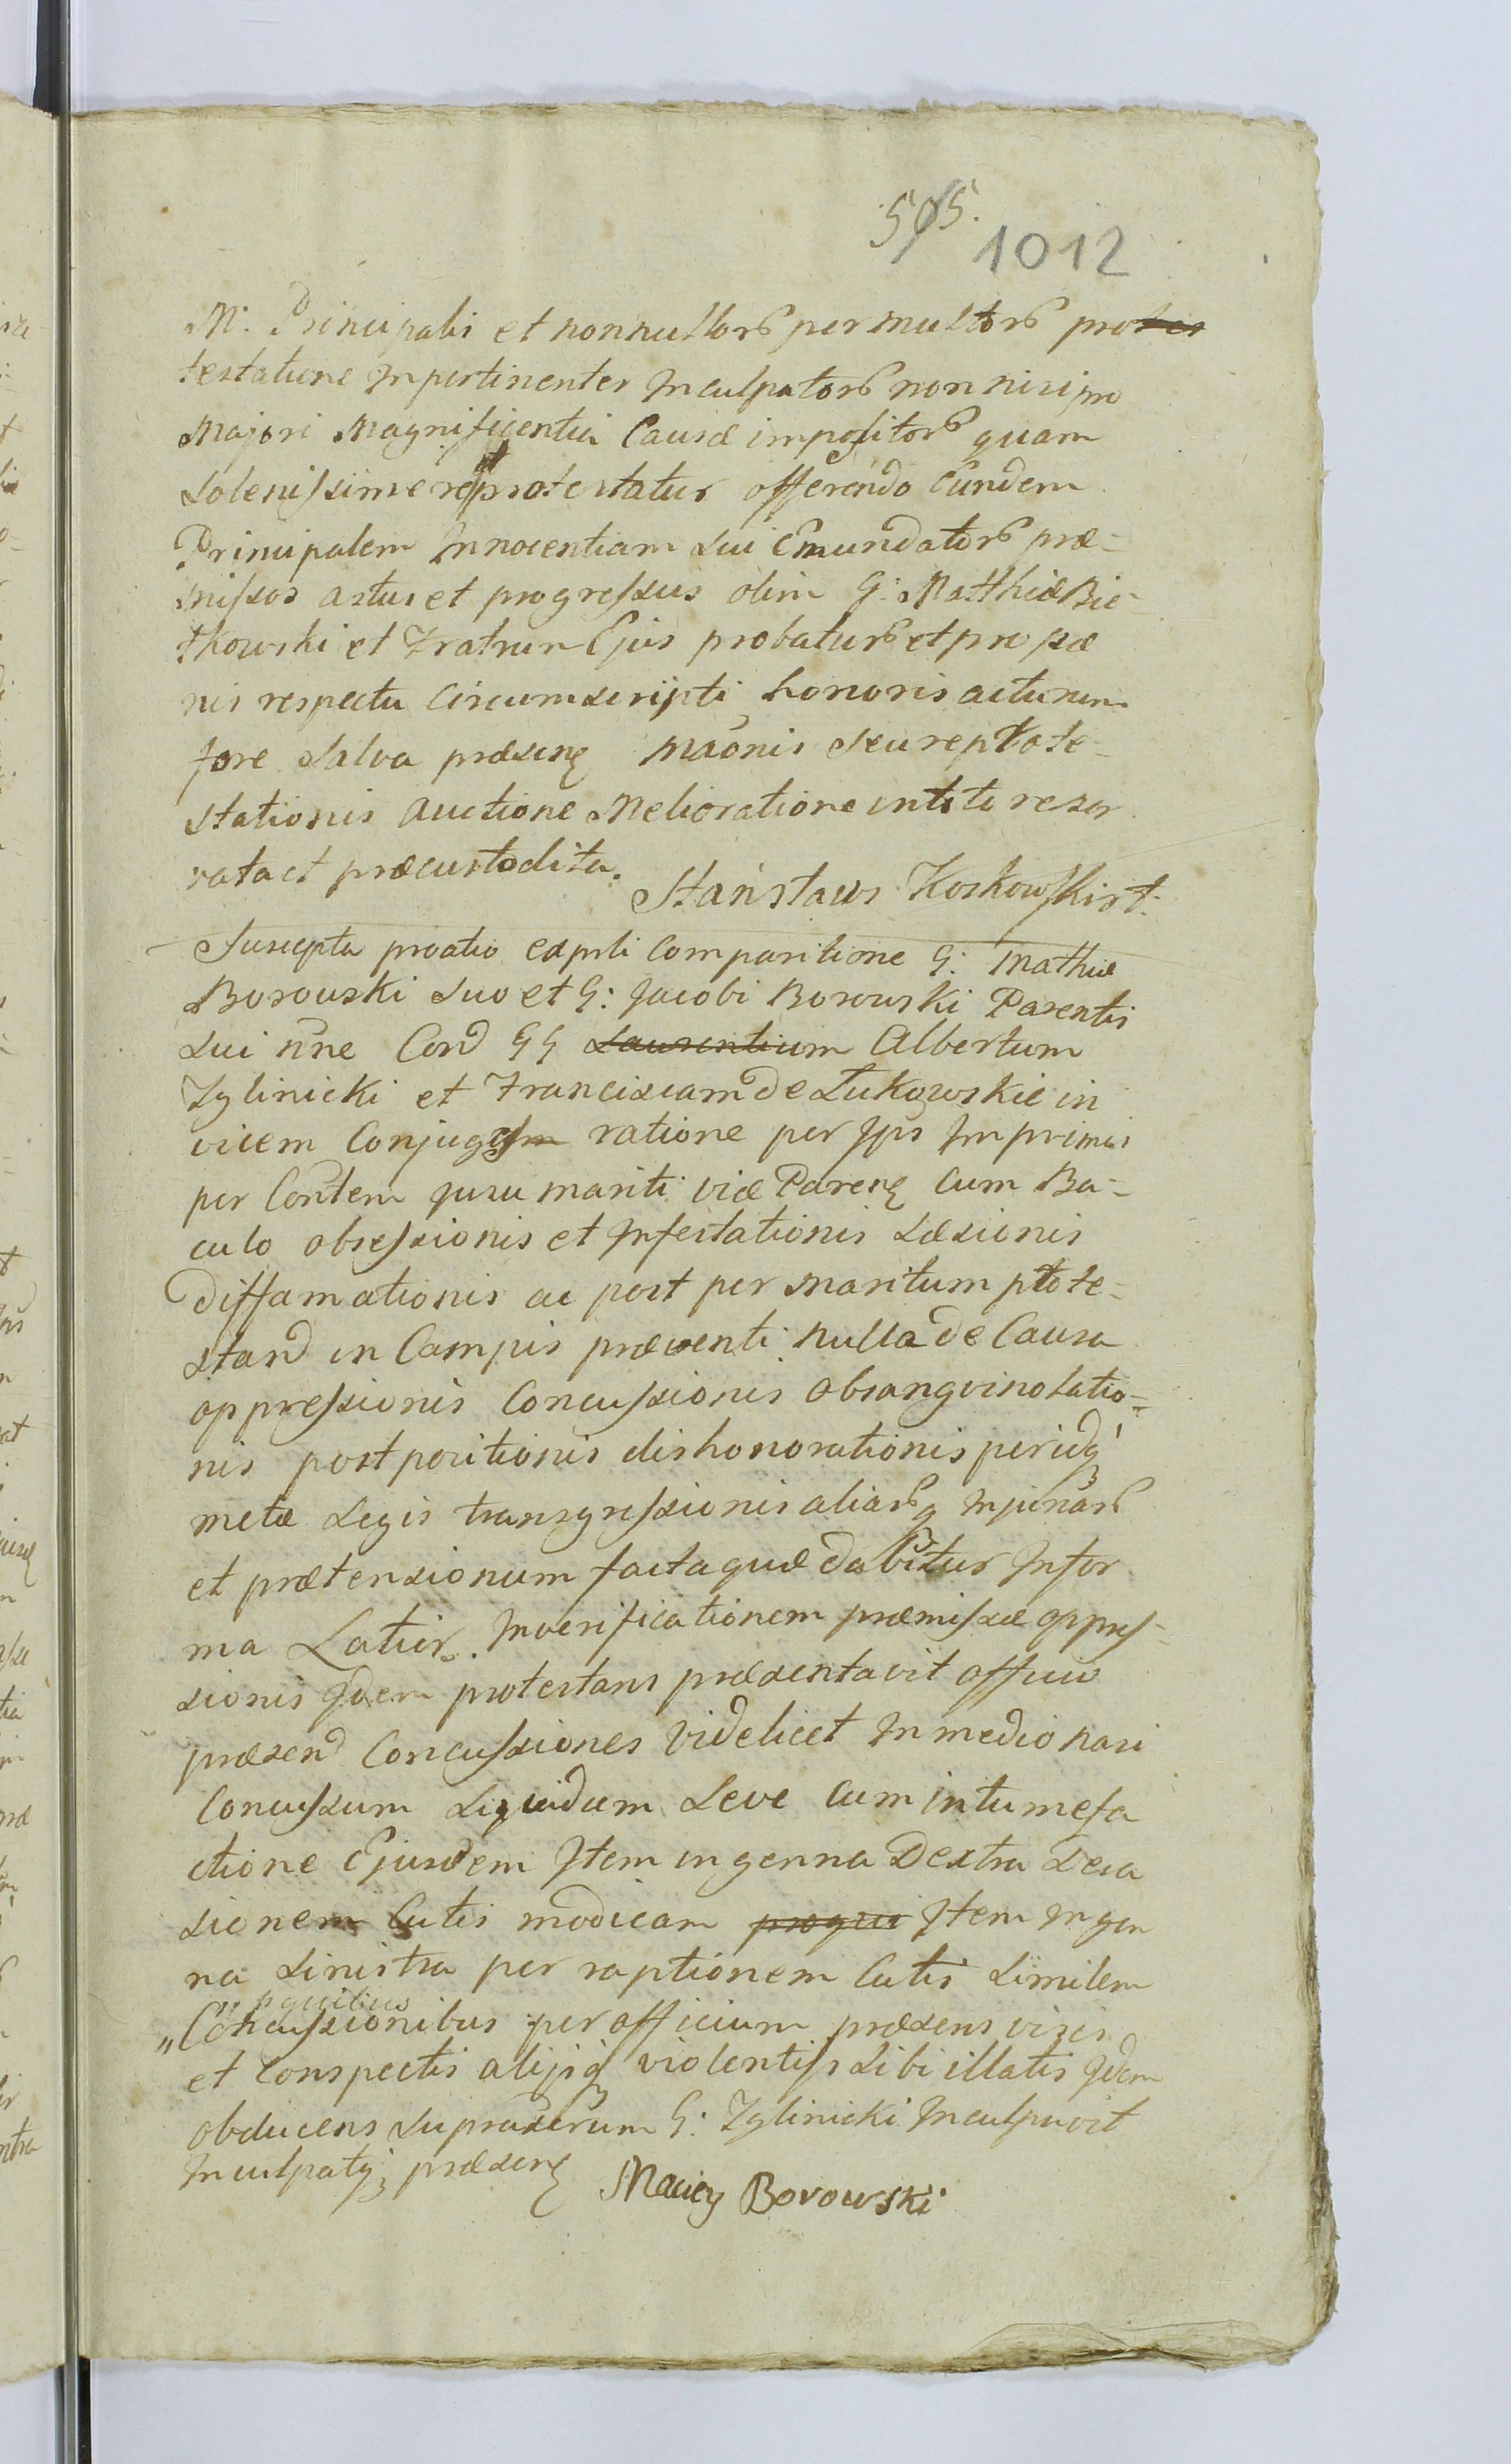 505.
1012
M: Principalis et nonnullorũ permultorũ protes
testatione Impertinenter Inculpatorũ non nisi pro
Majori Magnificentia Causæ impositorũ quam
Solenissime reprotestatur offerendo Eundem
Principalem Innocentiam Sui Emundatorũ præ=
missos astus et progressus olim G: Matthiæ Bie=
tkowski et Fratrum Ejus probaturũ et pro pæ
nis respectu Circumscripti honoris acturum
fore Salva præsenꝭ mãonis Seu reptote=
stationis auctione Melioratione in toto reser
vata et præcustodita.
Stanisław Koskowski
Suscepta proatio ex parli Comparitione G: Mathiæ
Borowski Suo et G: Jacobi Borowski Parentis
Sui nñe Cord GG Laurentium Albertum
Zglinicki et Franciscam de Łukowskie in
vicem Conjuges ratione per Ips Imprimis
per Contem jussu mariti viæ Parenꝭ Cum Ba=
culo obsessionis et Infestationis Læsionis
Diffamationis ac post per Maritum ptote=
stand in Campis præventi nulla de Causa
oppressionis Concussionis Obsangvinolatio=
nis postpositionis dishonorationis peridq́
metæ Legis transgressionis aliarũq Injuriarũ
et prætensionum facta quæ dabitur Infor
ma Latior. In verificationem præmissæ oppres=
sionis Idem protestans præsentavit officio
præsend Concussiones Videlicet In medio nasi
Concussum Liquidum Leve Cum intumefa
ctione Ejusdem Item in genna Dextra Deca
sionem Cutis modicam proqui Item In gen
na Sinistra per raptionem Cutis Similem
p quibus
„Concussionibus per officium præsens visis
et Conspectis alijsq violentijs Sibi illatis Idem
obducens Supradictum G: Zglinicki Inculpavit
Inculpatq præsenꝭ
Maciey Borowski